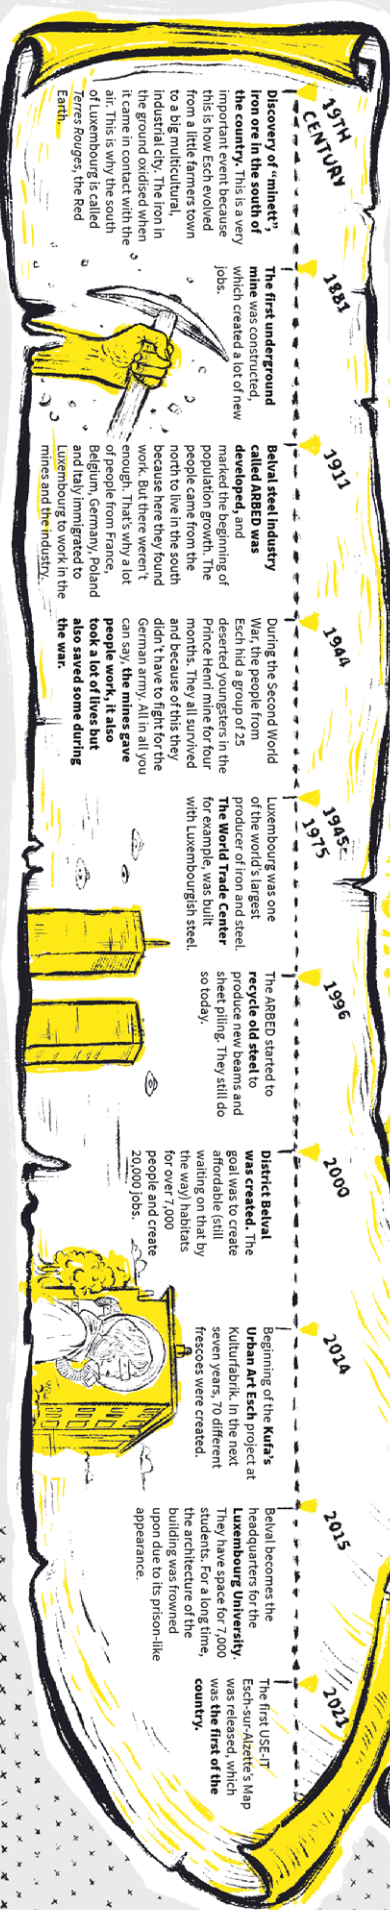 19TH
CENTURY
Discovery of “minett”,
iron ore in the south of
the country. This is a very
important event because
this is how Esch evolved
from a little farmers town
to a big multicultural,
industrial city. The iron in
the ground oxidised when
it came in contact with the
air. This is why the south
of Luxembourg is called
Terres Rouges, the Red
Earth.
1881
The first underground
mine was constructed,
which created a lot of new
jobs.
1911
Belval steel industry
called ARBED was
developed, and
marked the beginning of
population growth. The
people came from the
north to live in the south
because here they found
work. But there weren't
enough. That's why a lot
of people from France,
Belgium, Germany, Poland
and Italy immigrated to
Luxembourg to work in the
mines and the industry.
1944
During the Second World
War, the people from
Esch hid a group of 25
deserted youngsters in the
Prince Henri mine for four
months. They all survived
and because of this they
didn't have to fight for the
German army. All in all you
can say, the mines gave
people work, it also
took a lot of lives but
also saved some during
the war.
1945-
1975
Luxembourg was one
of the world's largest
producer of iron and steel.
The World Trade Center
for example, was built
with Luxembourgish steel.
1996
The ARBED started to
recycle old steel to
produce new beams and
sheet piling. They still do
so today.
2000
District Belval
was created. The
goal was to create
affordable (still
waiting on that by
the way) habitats
for over 7,000
people and create
20,000 jobs.
2014
Beginning of the Kufa's
Urban Art Esch project at
Kulturfabrik. In the next
seven years, 70 different
frescoes were created.
2015
Belval becomes the
headquarters for the
Luxembourg University.
They have space for 7,000
students. For a long time,
the architecture of the
building was frowned
upon due to its prison-like
appearance.
2021
The first USE-IT
Esch-sur-Alzette's Map
was released, which
was the first of the
country.